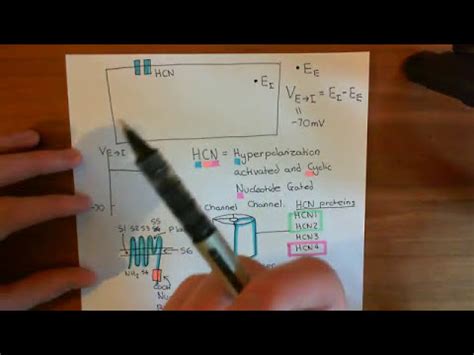 HCN
• E_I
• E_E
V_E→I = E_I - E_E
=
-70mV
V_E→I
HCN = Hyperpolarization
activated and Cyclic
Nucleotide Gated
Channel Channel. HCN proteins
HCN1
HCN2
HCN3
HCN4
S1
S2
S3
S4
S5
S6
NH2
COOH